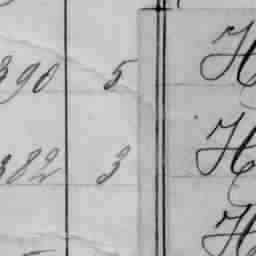 390 5 H
382 3 H
H